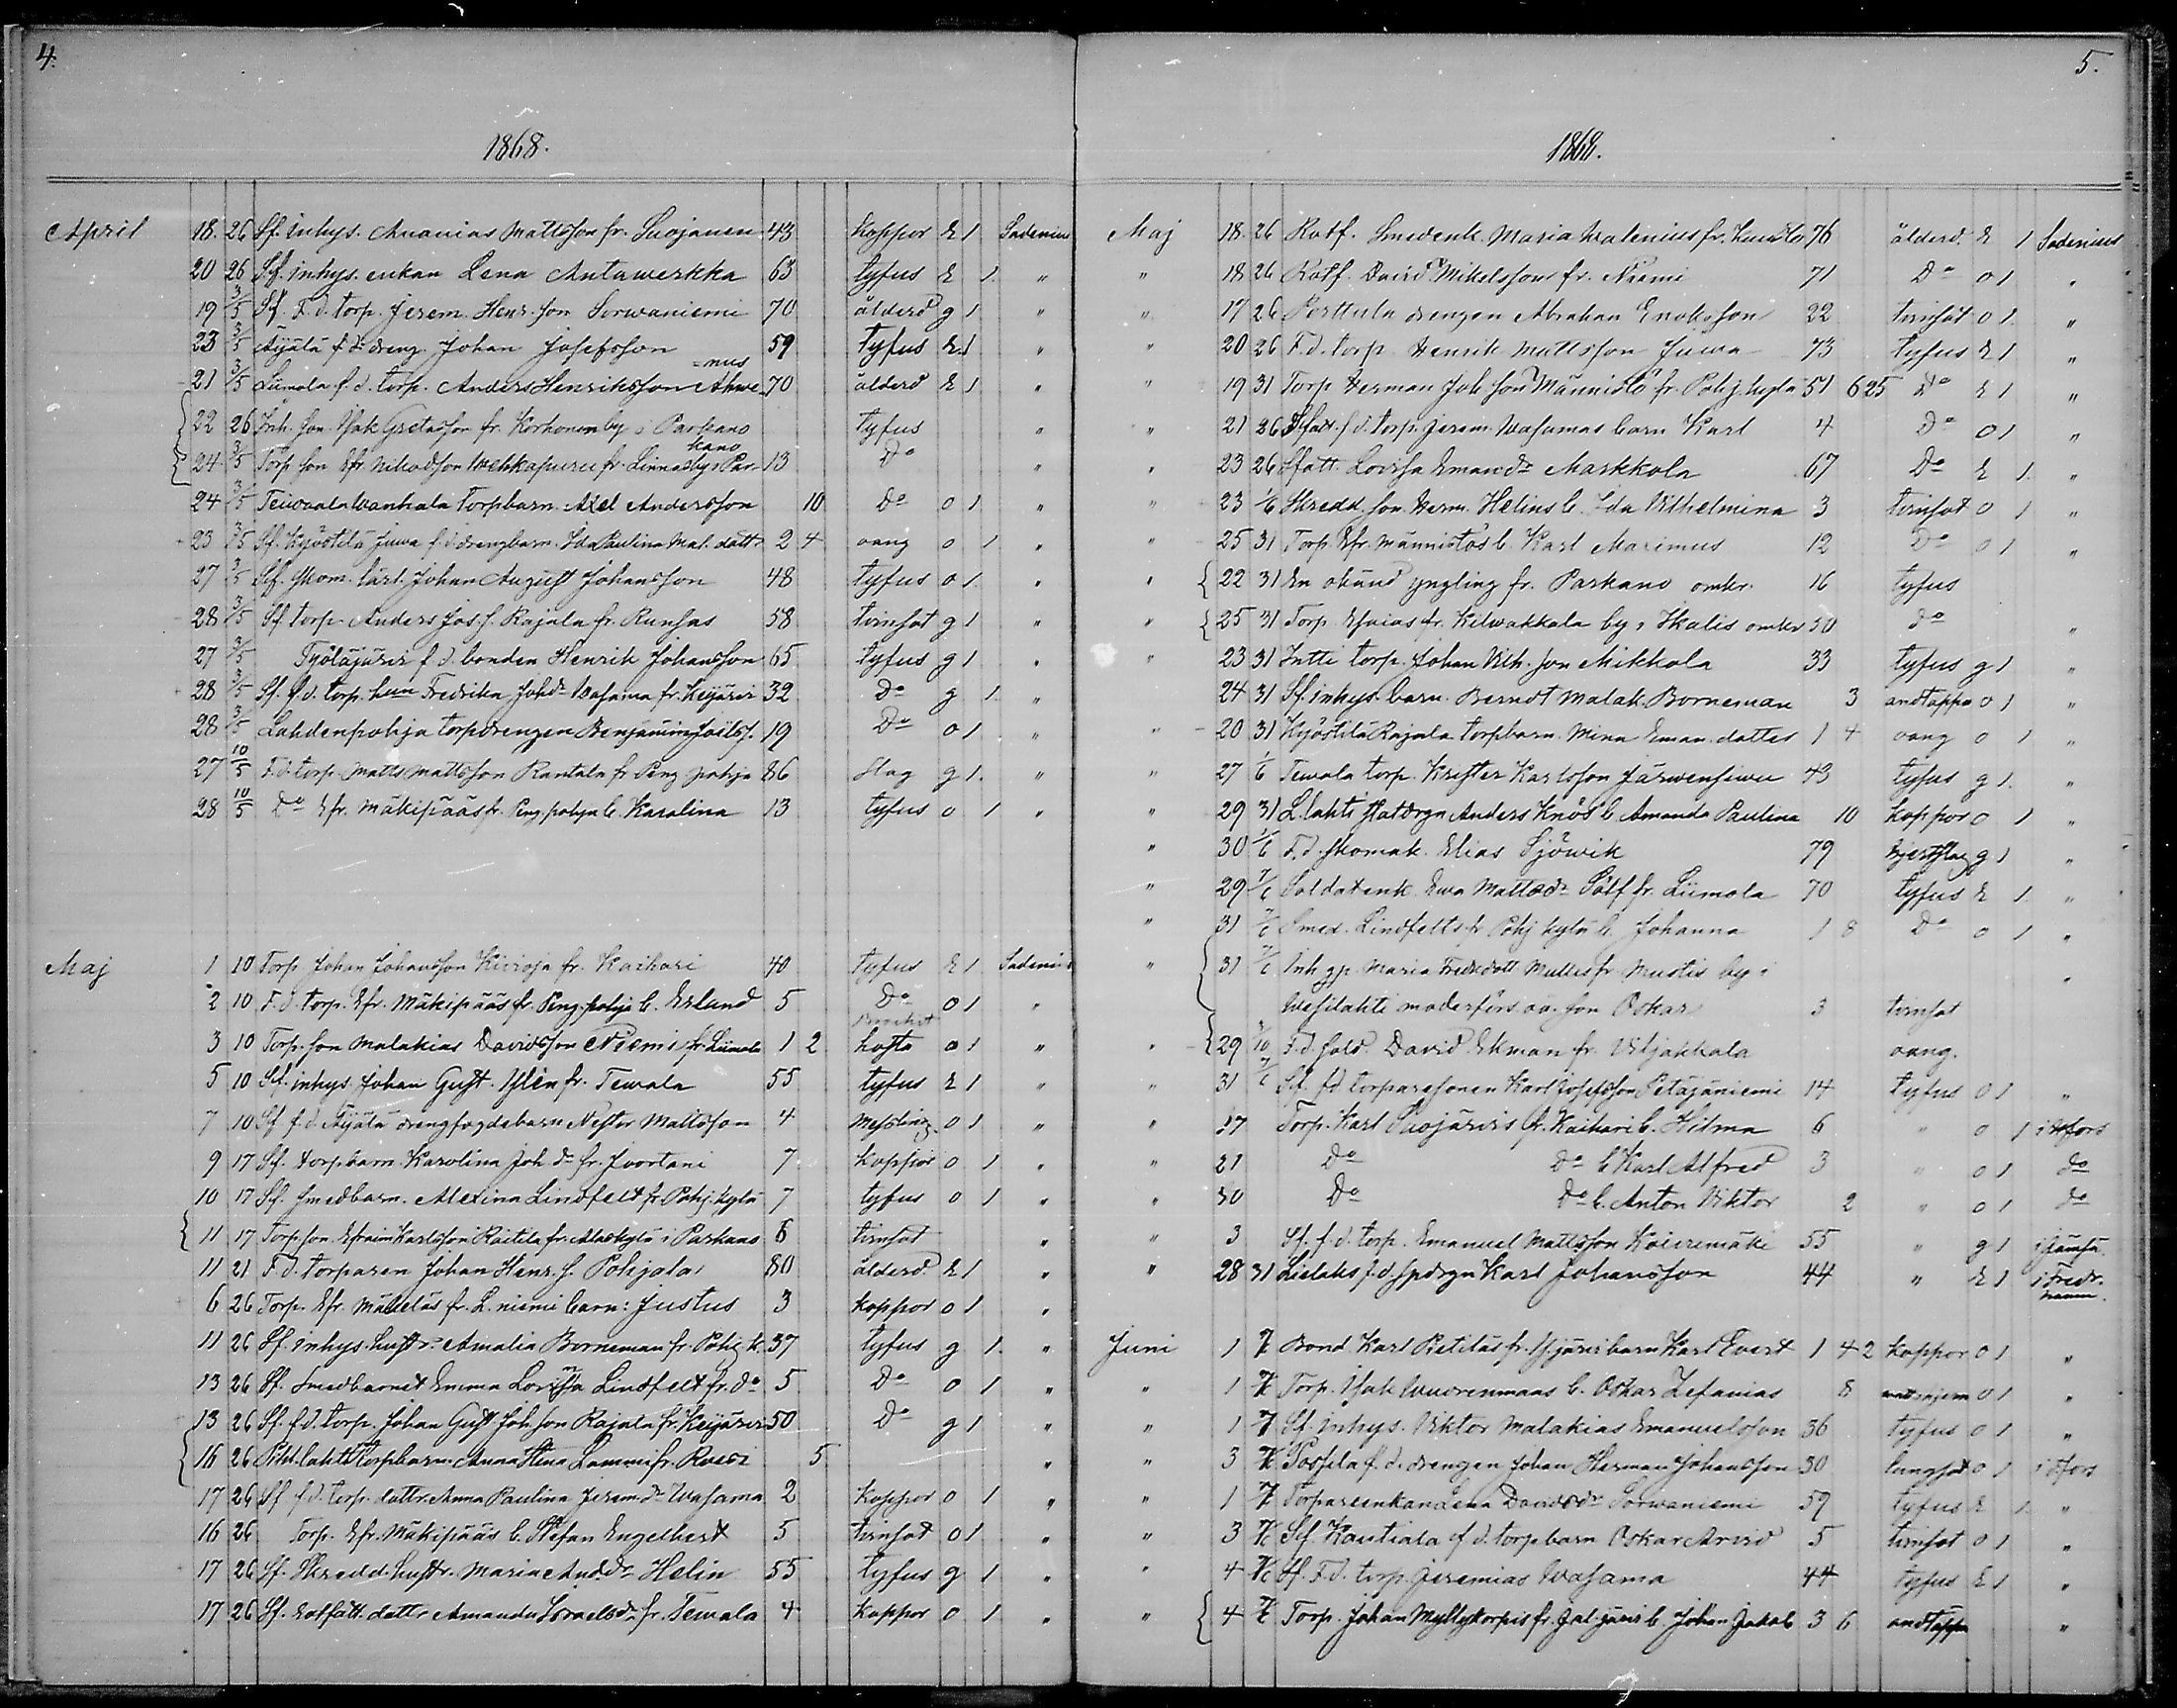 4.
1868.
April 18. 26 Sf. inhys. Ananias Mattsson fr. Suojanen 43 koppor E 1 Sadenius
20 26 Sf. inhys. enkan Lena Antawerkka 63 tyfus E 1. "
19 3/5 Sf. F. d. torp. Jerem. Henr. son Sorwaniemi 70 ålderd g 1 "
23 3/5 Äijälä f. d. dreng Johan Josefsson 59 tyfus E 1 "
21 3/5 Liimola f. d. torp. Anders Henriksson Ahwe=nus 70 ålderd E 1 "
22 26 Inh. son Isak Gretasson fr. Korhonen by i Parkano tyfus "
24 3/5 Torp. son Efr. Wehkapuru fr. Linnasby i Parkano 13 Do "
24 3/5 Teiwaala Wanhala torpbarn Axel Andersson 10 Do o 1 "
23 3/5 Sf. Kyöstilä Juwa f. d. drengbarn Ida Paulina Mal. dattr 2 4 oang o 1 "
27 3/5 Sf. skom. lärl. Johan August Johansson 48 tyfus o 1. "
28 3/5 Sf. torp. Anders Jos. s. Rajala fr. Runsas 58 tvinsot g 1 "
27 3/5 Työläjärvi f. d. bonden Henrik Johansson 65 tyfus g 1 "
28 3/5 Sf. f. d. torp. hun Fredrika Johdr Wasama fr. Keijärvi 32 Do g 1. "
28 3/5 Lahdenpohja torpdrengen Benjamin Joelss. 19 Do o 1 "
27 10/5 F. d. torp. Matts Mattsson Rantala fr. Peng. pohja 86 slag g 1. "
28 10/5 Do Efr. Mäkipääs fr. Peng. pohja b. Karolina 13 tyfus o 1 "
Maj 1 10 Torp. Johan Johansson Kivioja fr. Kaihari 40 tyfus E 1 Sadenius
2 10 F. d. torp. Efr. Mäkipääs fr. Peng. pohja b. Erland 5 Do o 1 "
3 10 Torp. son Malakias Davidsson Niemi fr. Liimola 1 2 hosta o 1 "
5 10 Sf. inhys. Johan Gust. Ylén fr. Tewala 55 tyfus E 1 "
7 10 Sf. f. d. Äijälä drengfogdebarn Nestor Mattsson 4 messling o 1 "
9 17 Sf. torpbarn Karolina Joh. dr fr. Juortani 7 koppor o 1 "
10 17 Sf. smedbarn Alexina Lindfelt fr. Pohj. kylä 7 tyfus o 1 "
11 17 Torp. son Efraim Karlsson Raitila fr. Alaskylä i Parkano 6 tvinsot "
11 21 F. d. torparen Johan Henr. s. Pohjala 80 ålderd. E 1 "
6 26 Torp. Efr. Mäkeläs fr. L. niemi barn: Justus 3 koppor o 1 "
11 26 Sf. inhys. hustr. Amalia Borneman fr. Pohj. k. 37 tyfus g 1. "
13 26 Sf. Smedbarnet Emma Lovisa Lindfelt fr. do 5 Do o 1 "
13 26 Sf. f. d. torp. Johan Gust. Joh. son Rajala fr. Keijärvi 50 Do g 1 "
16 26 Piht. lahti torpbarn Anna Stina Lammi fr. Ruovi 5 "
17 26 Sf. f. d. torp. dattr. Anna Paulina Jerem. dr Wasama 2 koppor o 1 "
16 26 Torp. Efr. Mäkipääs b. Stefan Engelbert 5 tvinsot o 1 "
17 26 Sf. Skredd. hustr. Maria And. dr Helin 55 tyfus g 1 "
17 26 Sf. rotfatt. dattr Amanda Israelsdr fr. Tewala 4 koppor o 1 "
5.
1868.
Maj 18. 26 Rotf. Smedenk. Maria Walenius fr. 76 ålderd. E 1 Sadenius
" 18 26 Rotf. David Mikelsson fr. Niemi 71 Do o 1 "
" 17 26 Perttula drengen Abraham Enoksson 22 tvinsot o 1. "
" 20 26 F. d. torp. Henrik Mattsson Juwa 73 tyfus E 1 "
" 19 31 Torp. Herman Joh. son Männistö fr. Pohj. kylä 51 6 25 Do E 1 "
" 21 26 f. d. torp. Jerem. Wasamas barn Karl 4 Do o 1 "
" 23 26 Sfatt. Lovisa Emandr Markkola 67 Do E 1. "
" 23 1/6 Skredd. son Herm. Helins b. Ida Vilhelmina 3 tvinsot o 1 "
" 25 31 Torp. Efr. Männistös b. Karl Maximus 12 Do o 1 "
" 22 31 En okänd yngling fr. Parkano omkr. 16 tyfus
" 25 31 Torp. Esaias fr. Kilwakkala by i Ikalis omkr 50 do "
" 23 31 Intti torp. Johan Vilh. son Mikkola 33 tyfus g 1 "
24 31 Sf. inhys. barn Berndt Malak. Borneman 3 andtäppa o 1 "
" 20 31 Kyöstilä Rajala torpbarn Mina Eman. dotter 1 4 oang o 1 "
" 27 1/6 Tewala torp. Krister Karlsson Järwensiwu 43 tyfus g 1. "
" 29 31 L. lahti statdrgn Anders Knös b. Amanda Paulina 10 koppor o 1 "
" 30 1/6 F. d. skomak. Elias Sjöwik 79 hjertslag g 1 "
" 29 7/6 Soldatenk. Ewa Mattsdr Sölf fr. Liimola 70 tyfus E 1. "
" 31 7/6 Smed. Lindfelts fr. Pohj. kylä b. Johanna 1 8 Do o 1 "
" 31 7/6 Inh. gp. Maria Fredr. dott. fr. Mustis by i "
Wesilahti moderförs. oä. son Oskar 3 tvinsot
" 29 F. d. sold. David Ekman fr. Viljakkala oang.
" 31 7/6 Sf. f. d. torparesonen Karl Josefsson Petäjäniemi 14 tyfus o 1 "
" 17 Torp. Karl Suojärvis fr. Kaihari b. Hilma 6 " o 1
" 21 Do Do b. Karl Alfred 3 " o 1 do
" 30 Do Do b. Anton Viktor 2 " o 1 do
" 3 Sf. f. d. torp. Emanuel Mattsson Koivumäki 55 " g 1 i Jämsä.
" 28 31 Lielaks f. d. spdrgn Karl Johansson 44 " E 1 i Fredr.hamn.
Juni 1 7/6 Bond. Karl Pietiläs fr. Ylijärvi barn Karl Evert 1 4 2 koppor o 1 "
" 1 7/6 Torp. Isak Wuorenmaas b. Oskar Zefanias 8 o 1 "
" 1 7/6 Sf. inhys. Viktor Malakias Emanuelsson 36 tyfus o 1 "
" 3 7/6 Possila f. d. drengen Johan Herman Johansson 30 lungsot o 1
" 1 7/6 Torpareenkan Lena Davidsdr Sorwaniemi 59 tyfus E 1. "
" 3 7/6 Sf. Kautiala f. d. torpbarn Oskar Arvid 5 tvinsot o 1 "
" 4 7/6 Sf. F. d. torp. Jeremias Wasama 44 tyfus E 1 "
" 4 7/6 Torp. Johan Myllykorpis fr. Jal. järvi b. Johan Jakob 3 6 andtäppa "